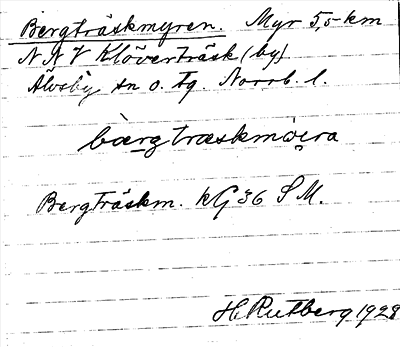 Bergträskmyren. Myr 5,5 km
NNV Klöverträsk (by)
Älvsby sn o. tg. Norrb. l.
bærgtræskmøra
Bergträskm. kG 36 S M.
H. Rutberg 1928